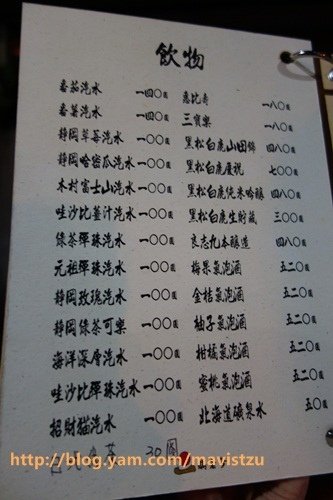 飲物
番茄汽水 一四〇圓
番薯汽水 一四〇圓
靜岡草莓汽水 一〇〇圓
靜岡哈密瓜汽水 一〇〇圓
木村富士山汽水 一〇〇圓
哇沙比薑汁汽水 一〇〇圓
綠茶彈珠汽水 一〇〇圓
元祖彈珠汽水 一〇〇圓
靜岡玫瑰汽水 一〇〇圓
靜岡綠茶可樂 一〇〇圓
海洋深層汽水 一〇〇圓
哇沙比彈珠汽水 一〇〇圓
招財貓汽水 一〇〇圓
30圓
惠比壽 一八〇圓
三寶樂 一八〇圓
黑松白鹿山田錦 四八〇圓
黑松白鹿慶祝 七〇〇圓
黑松白鹿純米吟釀 四八〇圓
黑松白鹿生貯藏 三〇〇圓
良志久本釀造 四八〇圓
梅果氣泡酒 五二〇圓
金桔氣泡酒 五二〇圓
柚子氣泡酒 五二〇圓
柑橘氣泡酒 五二〇圓
蜜桃氣泡酒 五二〇圓
北海道礦泉水 五〇圓
http://blog.yam.com/mavistzu